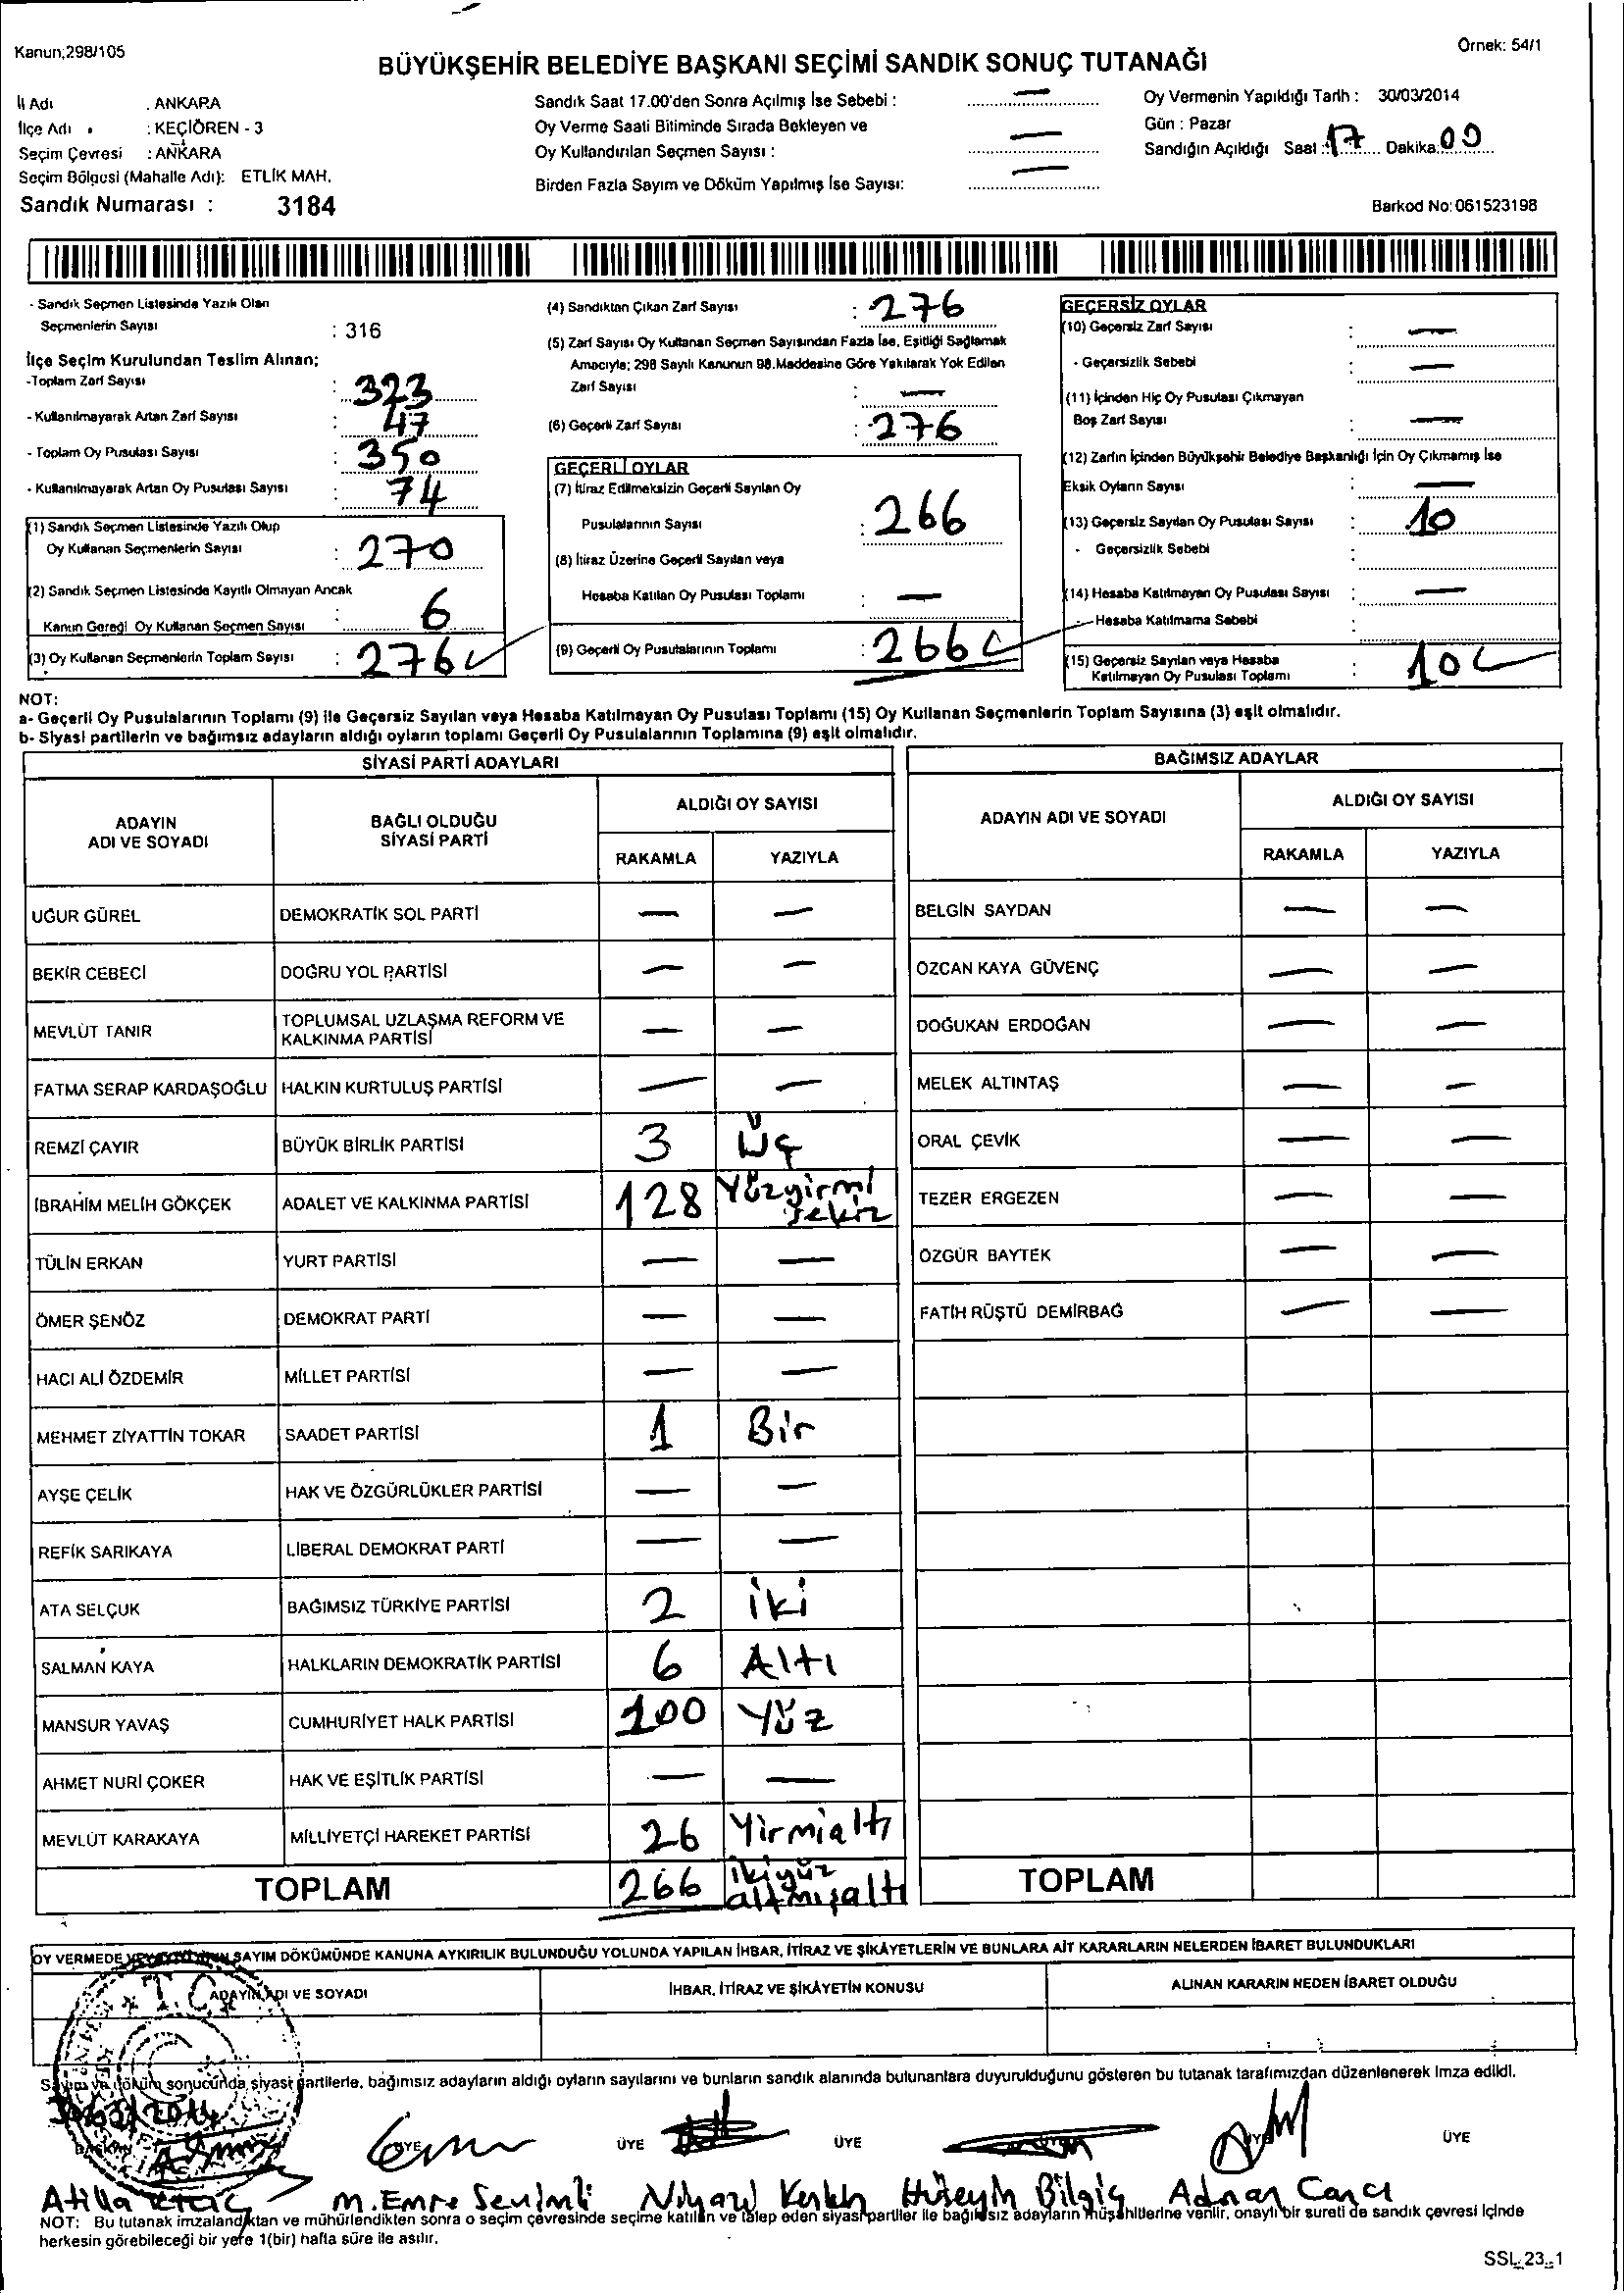 Kanun;298/105
Örnek: 54/1
BÜYÜKŞEHİR BELEDİYE BAŞKANI SEÇİMİ SANDIK SONUÇ TUTANAĞI
İl Adı : ANKARA
İlçe Adı : KEÇİÖREN - 3
Seçim Çevresi : ANKARA
Seçim Bölgesi (Mahalle Adı): ETLİK MAH.
Sandık Numarası : 3184
Sandık Saat 17.00'den Sonra Açılmış İse Sebebi : —
Oy Verme Saati Bitiminde Sırada Bekleyen ve
Oy Kullandırılan Seçmen Sayısı : —
Birden Fazla Sayım ve Döküm Yapılmış İse Sayısı: —
Oy Vermenin Yapıldığı Tarih : 30/03/2014
Gün : Pazar
Sandığın Açıldığı Saat : 17 Dakika: 00
Barkod No: 061523198
- Sandık Seçmen Listesinde Yazılı Olan
Seçmenlerin Sayısı : 316
İlçe Seçim Kurulundan Teslim Alınan;
-Toplam Zarf Sayısı : 323
- Kullanılmayarak Artan Zarf Sayısı : 47
- Toplam Oy Pusulası Sayısı : 350
- Kullanılmayarak Artan Oy Pusulası Sayısı : 74
(1) Sandık Seçmen Listesinde Yazılı Olup
Oy Kullanan Seçmenlerin Sayısı : 270
(2) Sandık Seçmen Listesinde Kayıtlı Olmayan Ancak
Kanun Gereği Oy Kullanan Seçmen Sayısı : 6
(3) Oy Kullanan Seçmenlerin Toplam Sayısı : 276
(4) Sandıktan Çıkan Zarf Sayısı : 276
(5) Zarf Sayısı Oy Kullanan Seçmen Sayısından Fazla İse, Eşitliği Sağlamak
Amacıyla; 298 Sayılı Kanunun 98.Maddesine Göre Yakılarak Yok Edilen
Zarf Sayısı : —
(6) Geçerli Zarf Sayısı : 276
GEÇERLİ OYLAR
(7) İtiraz Edilmeksizin Geçerli Sayılan Oy
Pusulalarının Sayısı : 266
(8) İtiraz Üzerine Geçerli Sayılan veya
Hesaba Katılan Oy Pusulası Toplamı : —
(9) Geçerli Oy Pusulalarının Toplamı : 266
GEÇERSİZ OYLAR
(10) Geçersiz Zarf Sayısı : —
- Geçersizlik Sebebi : —
(11) İçinden Hiç Oy Pusulası Çıkmayan
Boş Zarf Sayısı : —
(12) Zarfın İçinden Büyükşehir Belediye Başkanlığı İçin Oy Çıkmamış İse
Eksik Oyların Sayısı : —
(13) Geçersiz Sayılan Oy Pusulası Sayısı : 10
- Geçersizlik Sebebi :
(14) Hesaba Katılmayan Oy Pusulası Sayısı : —
- Hesaba Katılmama Sebebi :
(15) Geçersiz Sayılan veya Hesaba
Katılmayan Oy Pusulası Toplamı : 10
NOT:
a- Geçerli Oy Pusulalarının Toplamı (9) ile Geçersiz Sayılan veya Hesaba Katılmayan Oy Pusulası Toplamı (15) Oy Kullanan Seçmenlerin Toplam Sayısına (3) eşit olmalıdır.
b- Siyasi partilerin ve bağımsız adayların aldığı oyların toplamı Geçerli Oy Pusulalarının Toplamına (9) eşit olmalıdır.
SİYASİ PARTİ ADAYLARI
ADAYIN ADI VE SOYADI
BAĞLI OLDUĞU SİYASİ PARTİ
ALDIĞI OY SAYISI
RAKAMLA YAZIYLA
UĞUR GÜREL DEMOKRATİK SOL PARTİ — —
BEKİR CEBECİ DOĞRU YOL PARTİSİ — —
MEVLÜT TANIR TOPLUMSAL UZLAŞMA REFORM VE KALKINMA PARTİSİ — —
FATMA SERAP KARDAŞOĞLU HALKIN KURTULUŞ PARTİSİ — —
REMZİ ÇAYIR BÜYÜK BİRLİK PARTİSİ 3 Üç
İBRAHİM MELİH GÖKÇEK ADALET VE KALKINMA PARTİSİ 128 Yüzyirmi sekiz
TÜLİN ERKAN YURT PARTİSİ — —
ÖMER ŞENÖZ DEMOKRAT PARTİ — —
HACI ALİ ÖZDEMİR MİLLET PARTİSİ — —
MEHMET ZİYATTİN TOKAR SAADET PARTİSİ 1 Bir
AYŞE ÇELİK HAK VE ÖZGÜRLÜKLER PARTİSİ — —
REFİK SARIKAYA LİBERAL DEMOKRAT PARTİ — —
ATA SELÇUK BAĞIMSIZ TÜRKİYE PARTİSİ 2 iki
SALMAN KAYA HALKLARIN DEMOKRATİK PARTİSİ 6 Altı
MANSUR YAVAŞ CUMHURİYET HALK PARTİSİ 100 Yüz
AHMET NURİ ÇOKER HAK VE EŞİTLİK PARTİSİ — —
MEVLÜT KARAKAYA MİLLİYETÇİ HAREKET PARTİSİ 26 Yirmialtı
TOPLAM 266 ikiyüz altmışaltı
BAĞIMSIZ ADAYLAR
ADAYIN ADI VE SOYADI
ALDIĞI OY SAYISI
RAKAMLA YAZIYLA
BELGİN SAYDAN — —
ÖZCAN KAYA GÜVENÇ — —
DOĞUKAN ERDOĞAN — —
MELEK ALTINTAŞ — —
ORAL ÇEVİK — —
TEZER ERGEZEN — —
ÖZGÜR BAYTEK — —
FATİH RÜŞTÜ DEMİRBAĞ — —
TOPLAM
OY VERMEDE SAYIM DÖKÜMÜNDE KANUNA AYKIRILIK BULUNDUĞU YOLUNDA YAPILAN İHBAR, İTİRAZ VE ŞİKÂYETLERİN VE BUNLARA AİT KARARLARIN NELERDEN İBARET BULUNDUKLARI
ADAYIN ADI VE SOYADI
İHBAR, İTİRAZ VE ŞİKÂYETİN KONUSU
ALINAN KARARIN NEDEN İBARET OLDUĞU
T.C.
Sayım ve döküm sonucunda, siyasi partilerle, bağımsız adayların aldığı oyların sayılarını ve bunların sandık alanında bulunanlara duyurulduğunu gösteren bu tutanak tarafımızdan düzenlenerek imza edildi.
30/03/2014
BAŞKAN ÜYE ÜYE ÜYE ÜYE ÜYE
Atilla M. Emre Sevimli Niyazi Hüseyin Bilgiç Adnan
NOT: Bu tutanak imzalandıktan ve mühürlendikten sonra o seçim çevresinde seçime katılan ve talep eden siyasi partiler ile bağımsız adayların müşahitlerine verilir, onaylı bir sureti de sandık çevresi içinde
herkesin görebileceği bir yere 1(bir) hafta süre ile asılır.
SSL 23_1